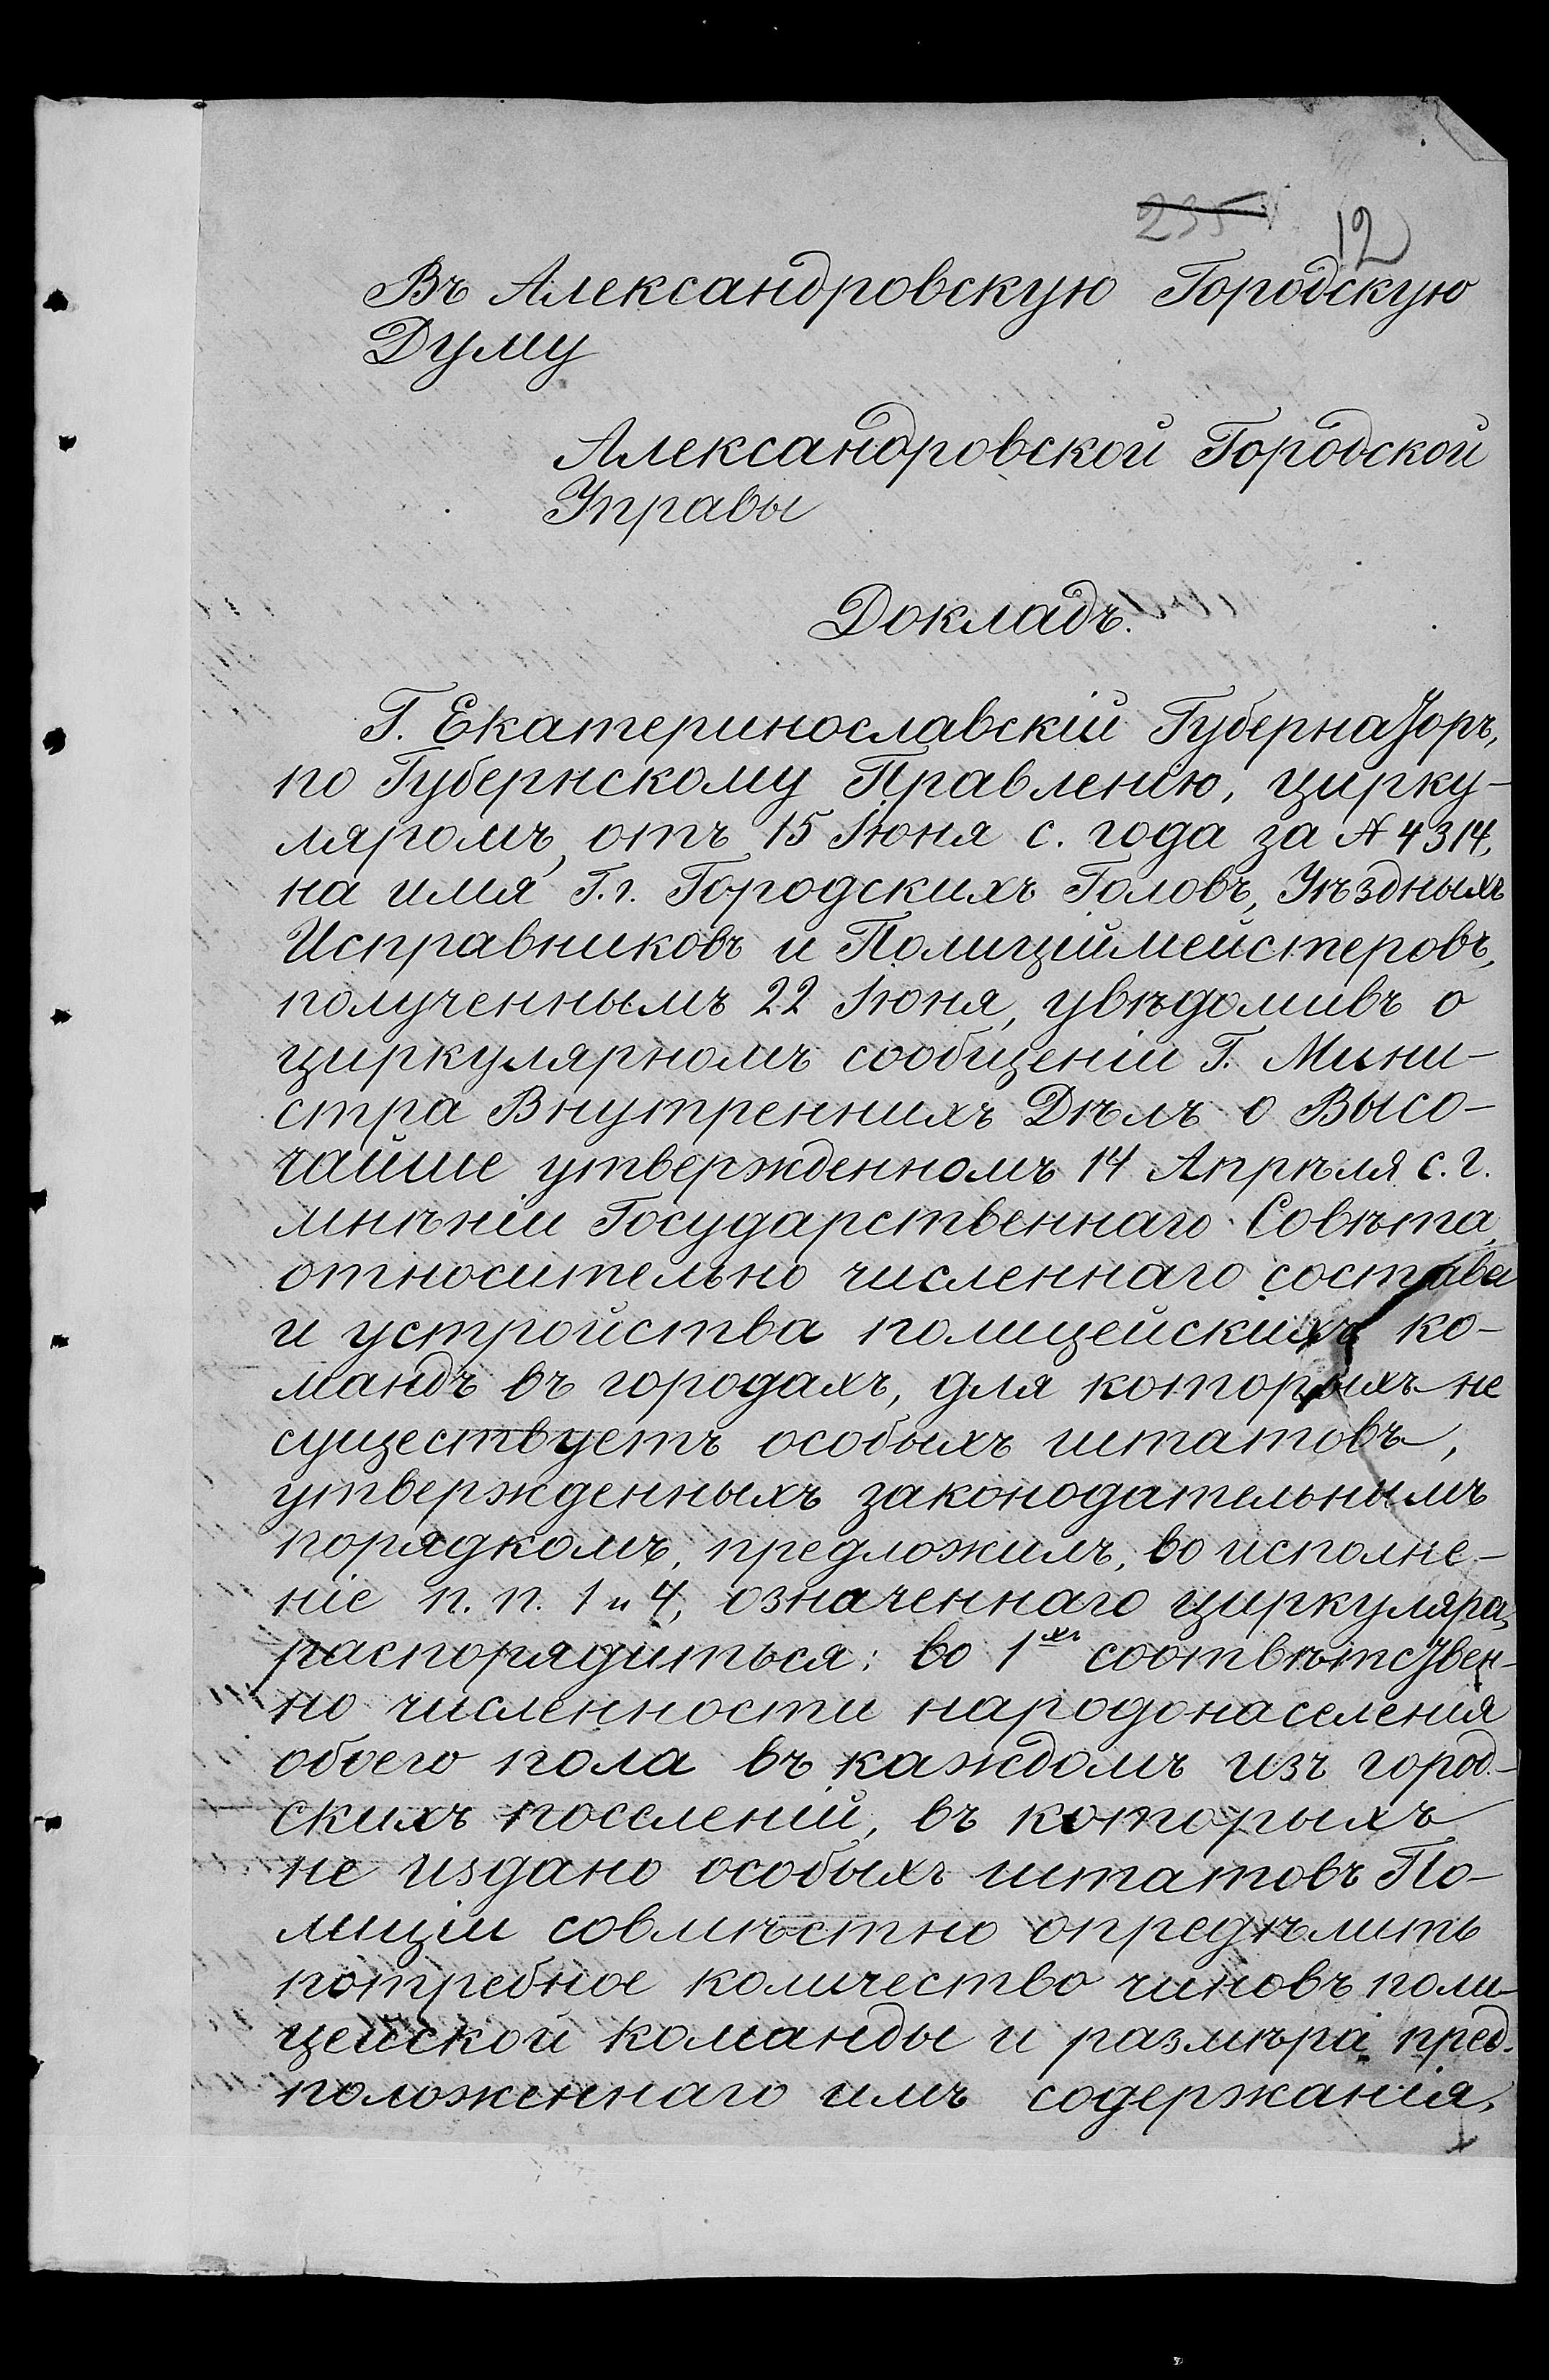 235
12
Въ Александровскую Городскую
Думу
Александровской Городской
Управы
Докладъ.
Г. Екатеринославскій Губернаторъ,
по Губернскому Правленію, цирку-
ляромъ, отъ 15 Іюня с. года за № 4314,
на имя Г.г. Городскихъ Головъ, Уѣздныхъ
Исправниковъ и Полиціймейстеровъ,
полученнымъ 22 Іюня, увѣдомивъ о
циркулярномъ сообщеніи Г. Мини-
стра Внутреннихъ Дѣлъ о Высо-
чайше утвержденномъ 14 Апрѣля с. г.
мнѣніи Государственнаго Совѣта,
относительно численнаго состава
и устройства полицейскихъ ко-
мандъ въ городахъ, для которыхъ не
существуетъ особыхъ штатовъ,
утвержденныхъ законодательнымъ
порядкомъ, предложилъ, во исполне-
ніе п. п. 1 и 4, означеннаго циркуляра,
распорядиться: во 1хъ соотвѣтствен-
но численности народонаселенія
обоего пола въ каждомъ изъ город-
скихъ поселеній, въ которыхъ
не издано особыхъ штатовъ По-
лиціи совмѣстно опредѣлить
потребное количество чиновъ поли-
цейской команды и размѣра пред-
положеннаго имъ содержанія,